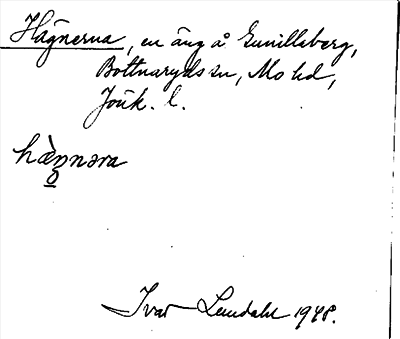 Hägnerna, en äng å Gunillaberg,
Bottnaryds sn, Mo hd,
Jönk. l.
hæ̀ŋnəra
Ivar Lundahl 1948.